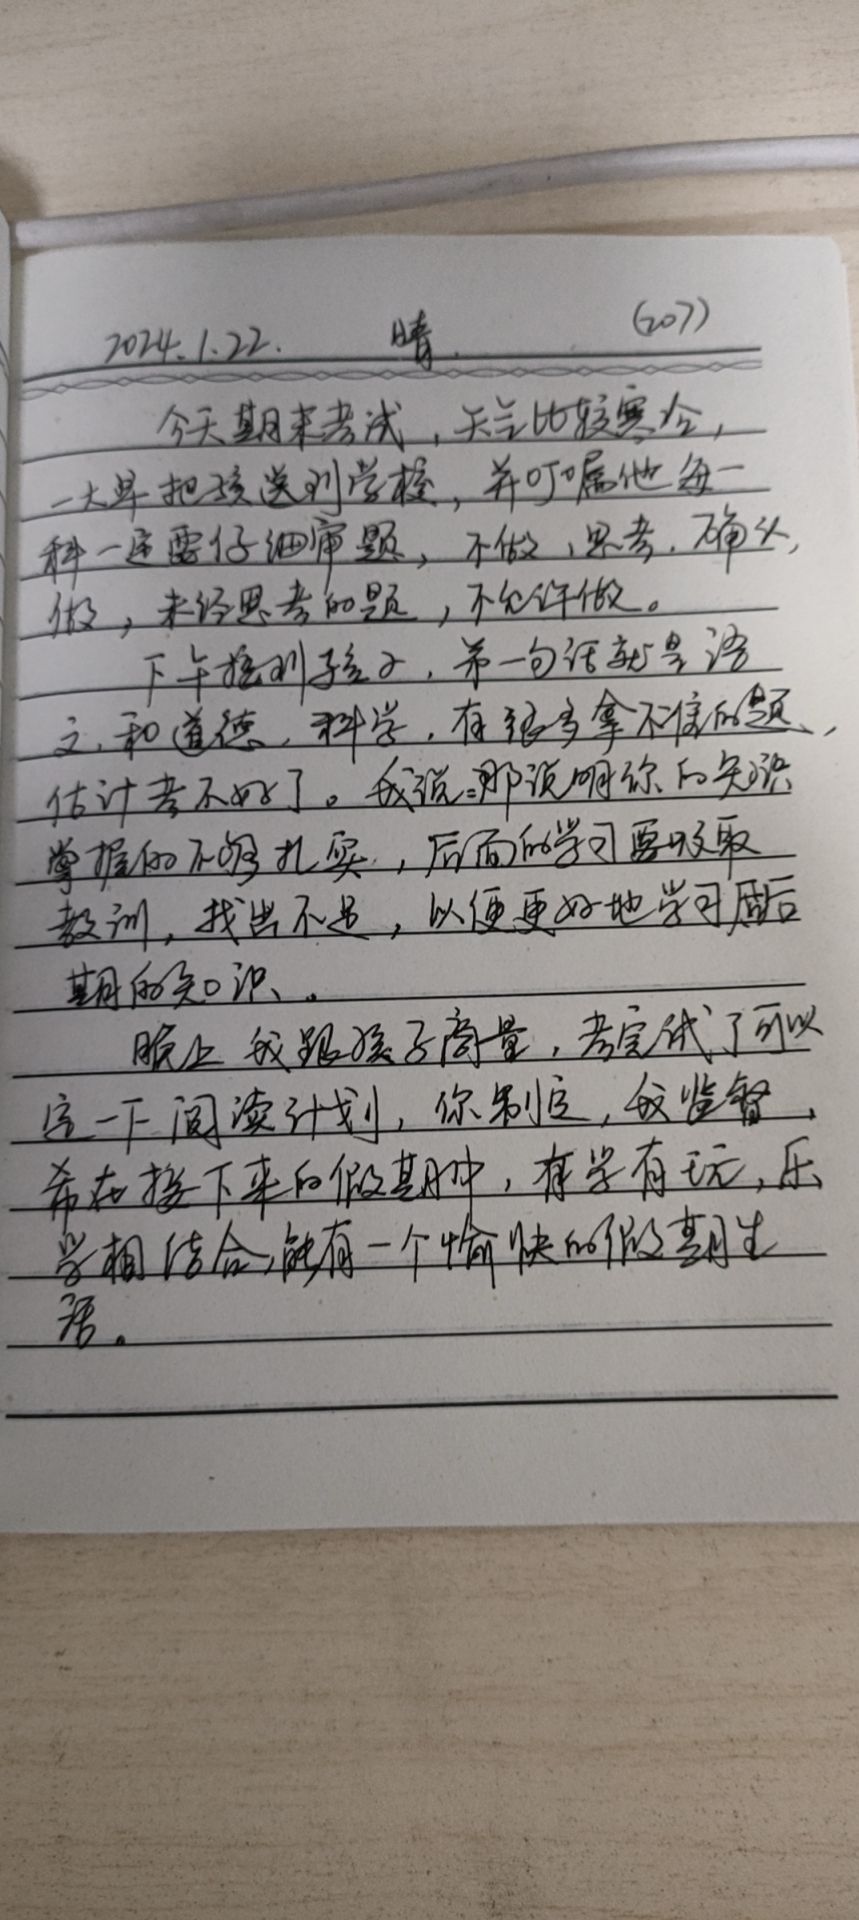 2024.1.22. 晴. (207)
今天期末考试，天气比较寒冷，
一大早把孩送到学校，并叮嘱他每一
科一定要仔细审题，不做、思考、确认，
做，未经思考的题，不允许做。
下午接到孩子，第一句话就是语
文、和道德、科学，有很多拿不准的题，
估计考不好了。我说：那说明你的知识
掌握的不够扎实，后面的学习要吸取
教训，找出不足，以便更好地学习后
期的知识、。
晚上我跟孩子商量，考完试了可以
定一下阅读计划，你制定，我监督，
希在接下来的假期中，有学有玩，乐
学相结合，能有一个愉快的假期生
活。